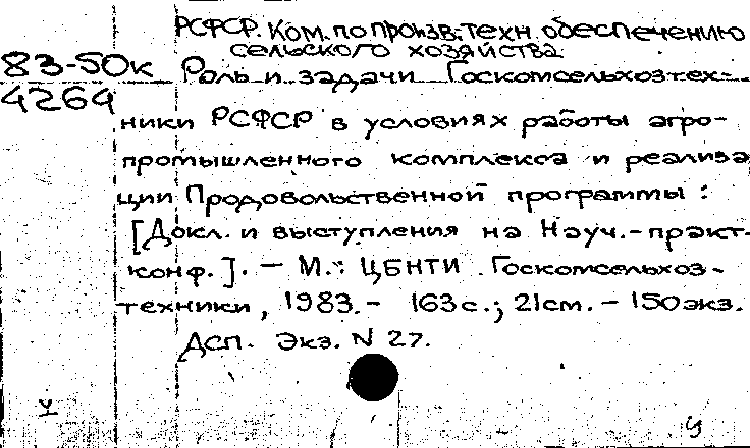 РСФСР. Ком. по произв.-техн. обеспечению
сельского хозяйства
83-50к Роль и задачи Госкомсельхозтех-
4264
ники РСФСР в условиях работы агро-
промышленного комплекса и реализа
ции Продовольственной программы :
[Докл. и выступления на Науч.-практ.
конф.]. — М.: ЦБНТИ Госкомсельхоз-
техники, 1983.- 163 с.; 21 см. — 150 экз.
Дсп. Экз. N 27.